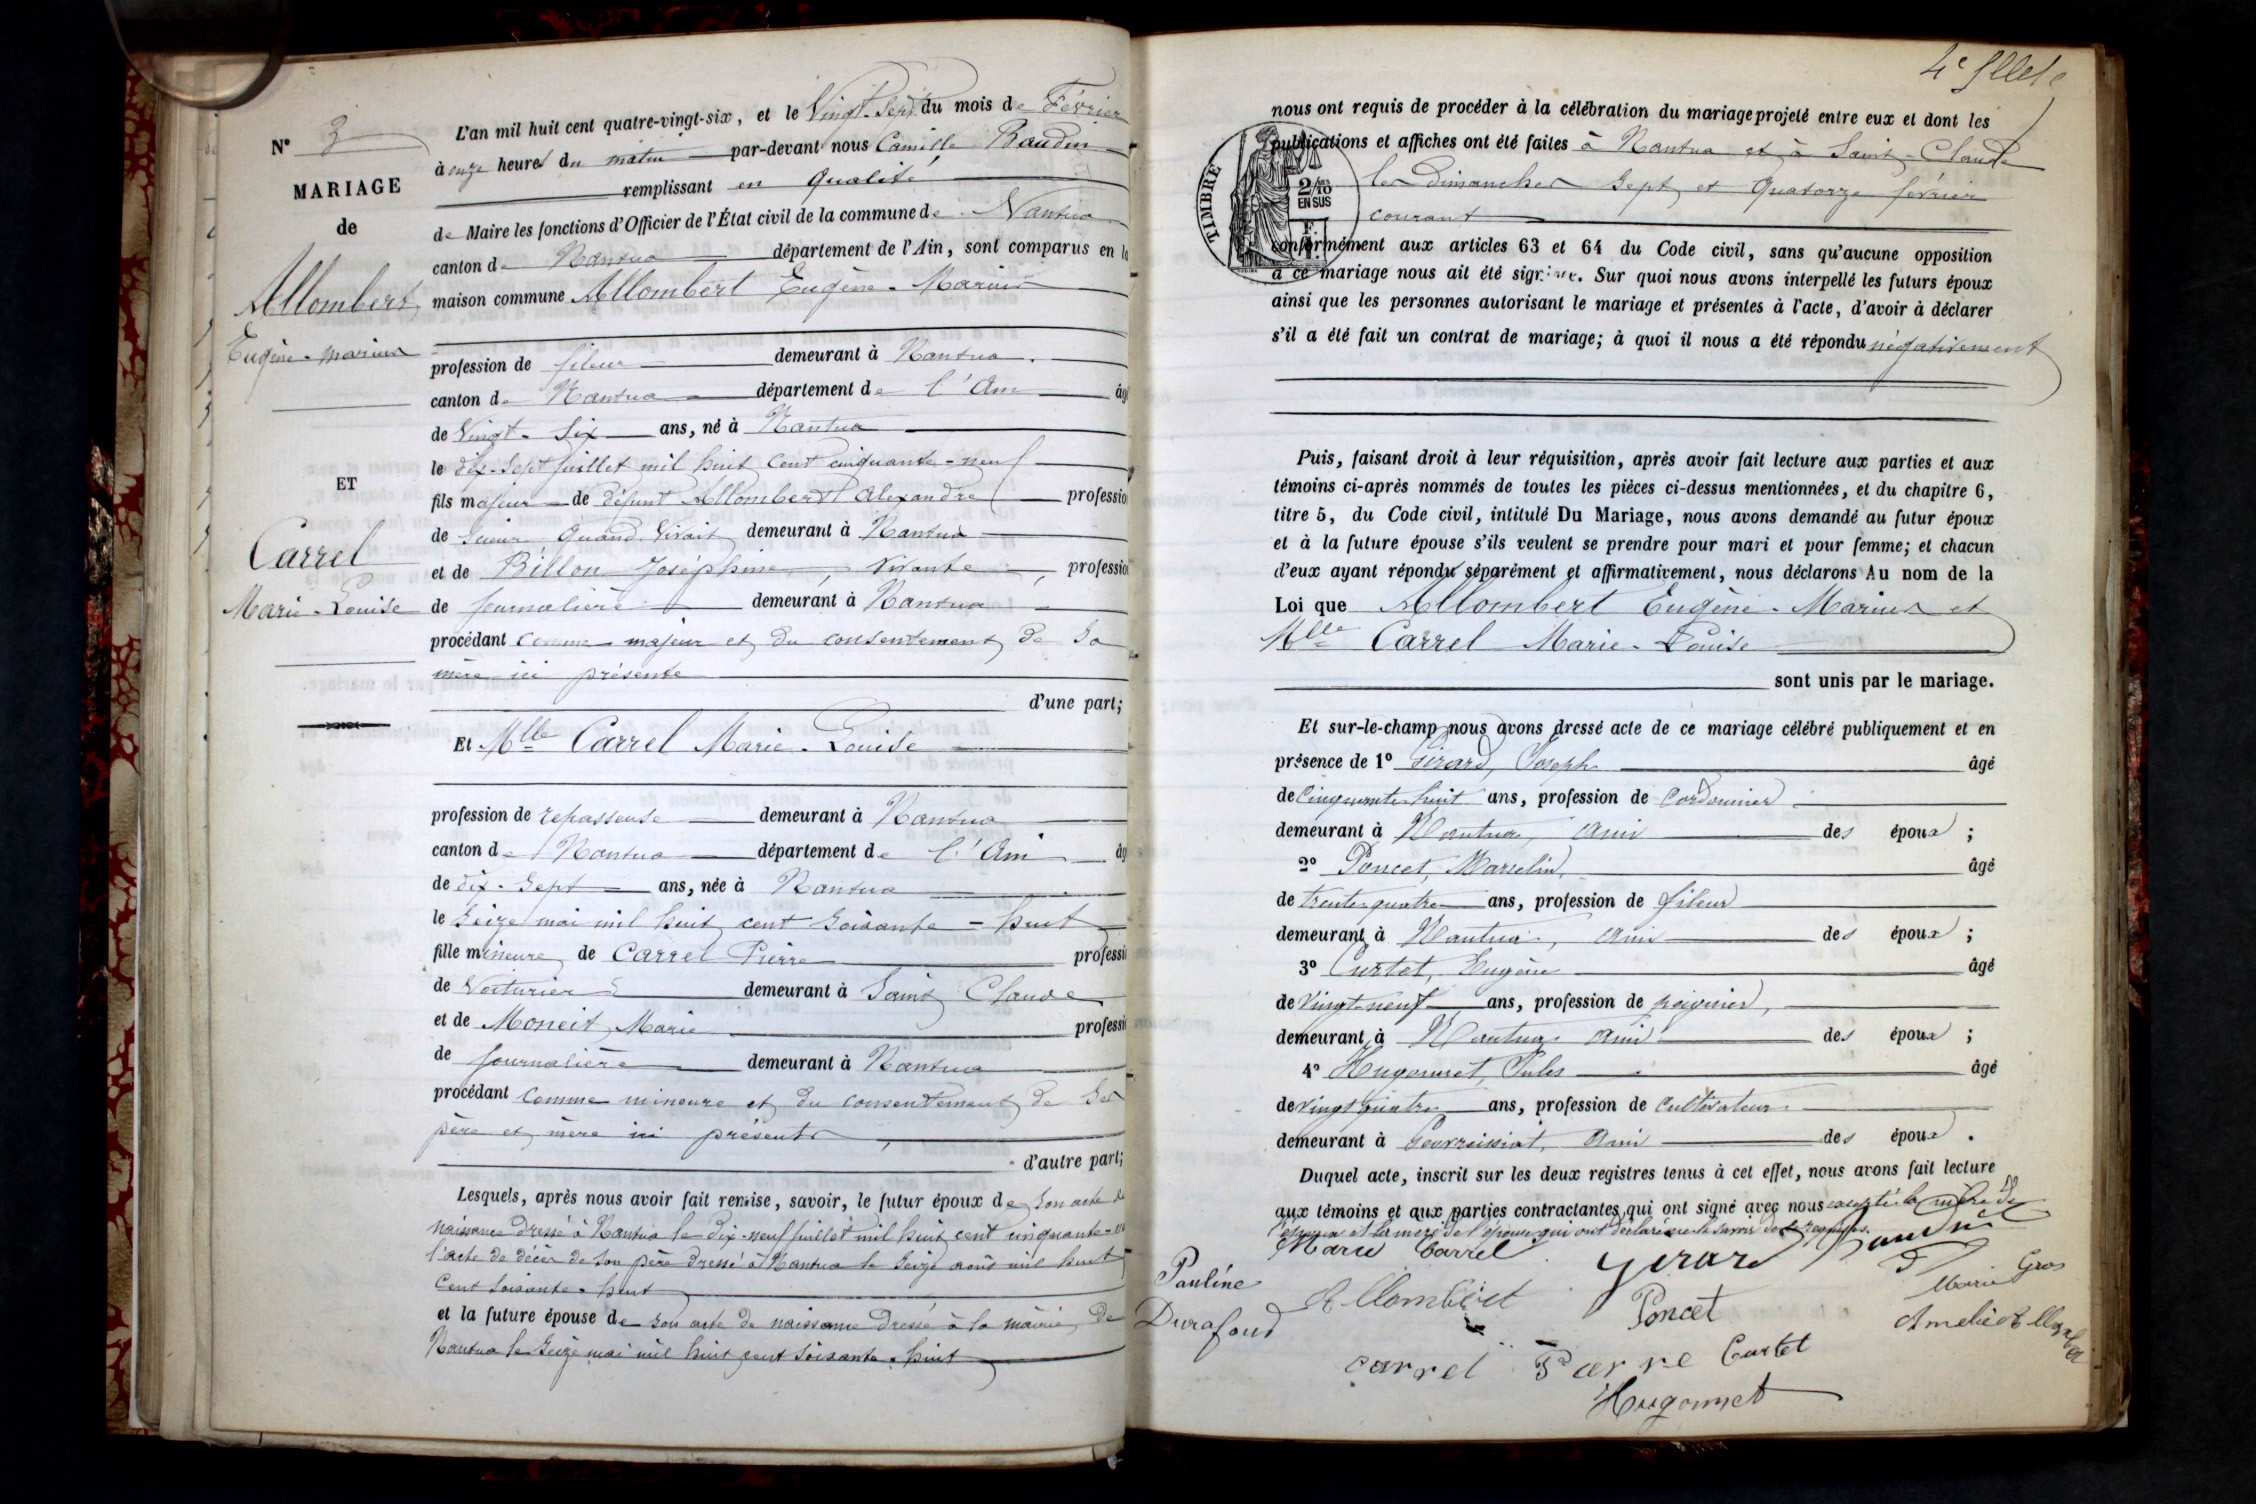 N° 3
MARIAGE
de
Allombert
Eugène-Marius
ET
Carrel
Marie-Louise
L'an mil huit cent quatre-vingt-six, et le Vingt-Sept du mois de Février
à onze heures du matin par-devant nous Camille Baudin
remplissant en qualité
de Maire les fonctions d'Officier de l'État civil de la commune de Nantua
canton de Nantua département de l'Ain, sont comparus en la
maison commune Allombert Eugène-Marius
profession de fileur demeurant à Nantua.
canton de Nantua département de l'Ain âgé
de Vingt-Six ans, né à Nantua
le dix-sept juillet mil huit cent cinquante-neuf
fils majeur de défunt Allombert Alexandre profession
de Scieur quand vivait demeurant à Nantua
et de Billon Joséphine, vivante, profession
de journalière demeurant à Nantua
procédant comme majeur et du consentement de sa
mère ici présente
d'une part;
Et Mlle Carrel Marie-Louise
profession de repasseuse demeurant à Nantua
canton de Nantua département de l'Ain âgé
de dix-sept ans, née à Nantua
le Seize mai mil huit cent soixante-huit
fille mineure de Carrel Pierre professi
de Voiturier demeurant à Saint Claude
et de Moneit, Marie professi
de journalière demeurant à Nantua
procédant comme mineure et du consentement de ses
père et mère ici présents,
d'autre part;
Lesquels, après nous avoir fait remise, savoir, le futur époux de son acte de
naissance dressé à Nantua le dix-neuf juillet mil huit cent cinquante-
l'acte de décès de son père dressé à Nantua le seize août mil huit
cent soixante-huit
et la future épouse de son acte de naissance dressé à la mairie de
Nantua le seize mai mil huit cent soixante-huit
4e
nous ont requis de procéder à la célébration du mariage projeté entre eux et dont les
publications et affiches ont été faites à Nantua et à Saint-Claude
les dimanches sept et quatorze février
courant
TIMBRE
2/10
EN SUS
conformément aux articles 63 et 64 du Code civil, sans qu'aucune opposition
à ce mariage nous ait été signifiée. Sur quoi nous avons interpellé les futurs époux
ainsi que les personnes autorisant le mariage et présentes à l'acte, d'avoir à déclarer
s'il a été fait un contrat de mariage; à quoi il nous a été répondu négativement
Puis, faisant droit à leur réquisition, après avoir fait lecture aux parties et aux
témoins ci-après nommés de toutes les pièces ci-dessus mentionnées, et du chapitre 6,
titre 5, du Code civil, intitulé Du Mariage, nous avons demandé au futur époux
et à la future épouse s'ils veulent se prendre pour mari et pour femme; et chacun
d'eux ayant répondu séparément et affirmativement, nous déclarons Au nom de la
Loi que Allombert Eugène-Marius et
Mlle Carrel Marie-Louise
sont unis par le mariage.
Et sur-le-champ nous avons dressé acte de ce mariage célébré publiquement et en
présence de 1° Girard, Joseph âgé
de Cinquante-huit ans, profession de Cordonnier
demeurant à Nantua, ami des époux;
2° Poncet, Marcelin, âgé
de trente-quatre ans, profession de fileur
demeurant à Nantua, ami des époux;
3° Curtet, Eugène âgé
de Vingt-neuf ans, profession de peignier,
demeurant à Nantua ami des époux;
4° Hugonnet, Jules âgé
de vingt quatre ans, profession de cultivateur
demeurant à Gevreissiat, ami des époux.
Duquel acte, inscrit sur les deux registres tenus à cet effet, nous avons fait lecture
aux témoins et aux parties contractantes qui ont signé avec nous excepté la mère de
l'époux et la mère de l'épouse qui ont déclaré ne le savoir de ce requises.
Marie Carrel Gerard Baudin
Pauline Durafour
Allombert Poncet
Marie Gros
Amélie Allomber
carrel Parre Curtet
Hugonnet